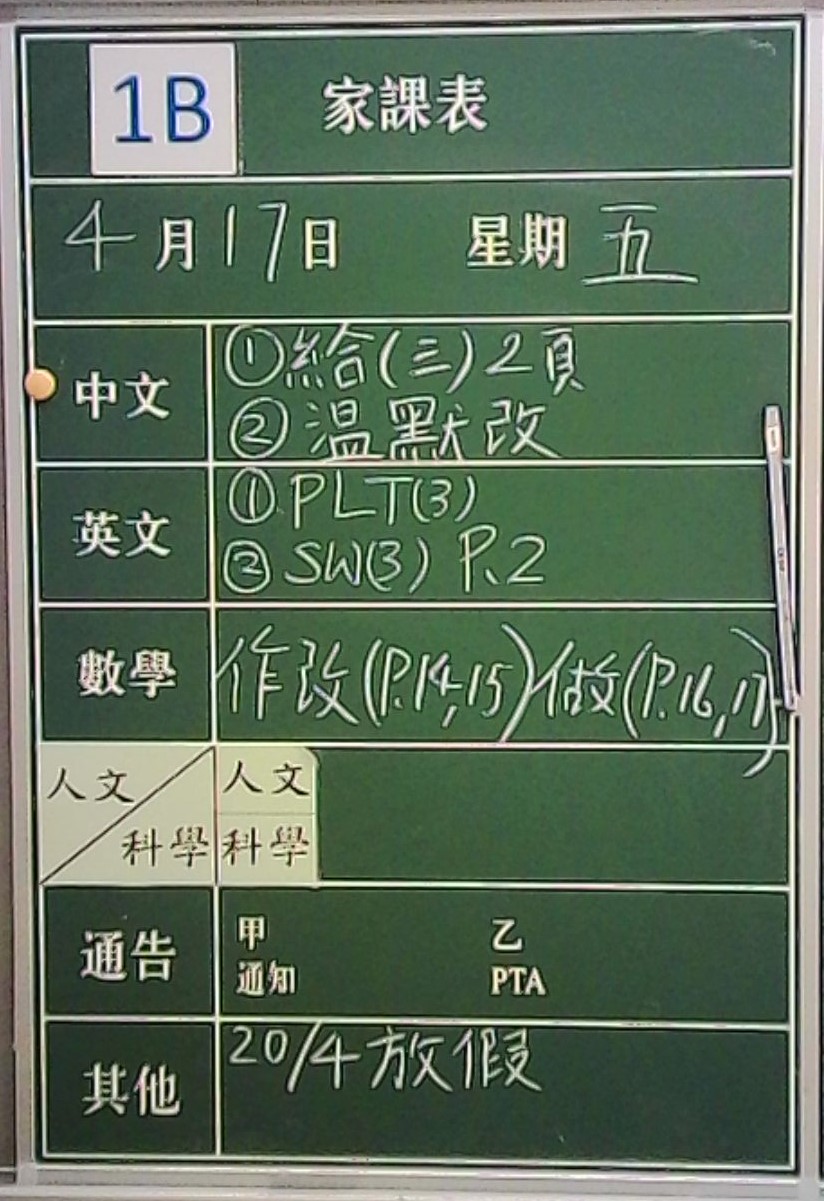 1B 家課表
4月17日 星期五
中文 ①給(三)2頁
②温默改
英文 ①PLT(3)
②SW(3) P.2
數學 作改(P.14,15)做(P.16,17)
人文
科學
人文
科學
通告 甲 乙
通知 PTA
其他 20/4放假